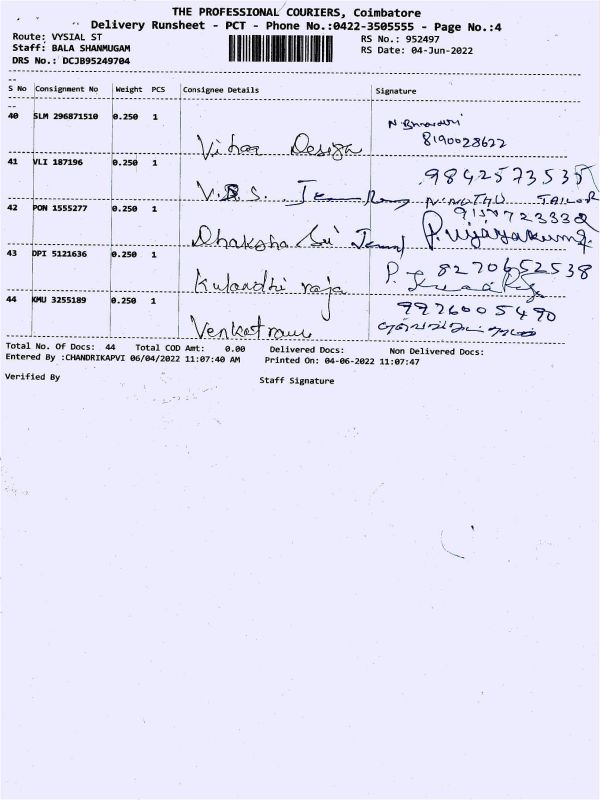 THE PROFESSIONAL COURIERS, Coimbatore
Delivery Runsheet - PCT - Phone No.:0422-3505555 - Page No.:4
Route: VYSIAL ST
RS No.: 952497
Staff: BALA SHANMUGAM
RS Date: 04-Jun-2022
DRS No.: DCJB95249704
S No Consignment No Weight PCS Consignee Details Signature
40 SLM 296871510 0.250 1 Vihaa Design
8190028622
41 VLI 187196 0.250 1 V.B.S.
N.MUTHU TAILOR
42 PON 1555277 0.250 1 Dhaksha Sri
P.Vijayakumar
43 DPI 5121636 0.250 1 Kulandhi raja
P. 8270652538
44 KMU 3255189 0.250 1 Venkatram
9976005490
Total No. Of Docs: 44 Total COD Amt: 0.00 Delivered Docs: Non Delivered Docs:
Entered By :CHANDRIKAPVI 06/04/2022 11:07:40 AM Printed On: 04-06-2022 11:07:47
Verified By
Staff Signature